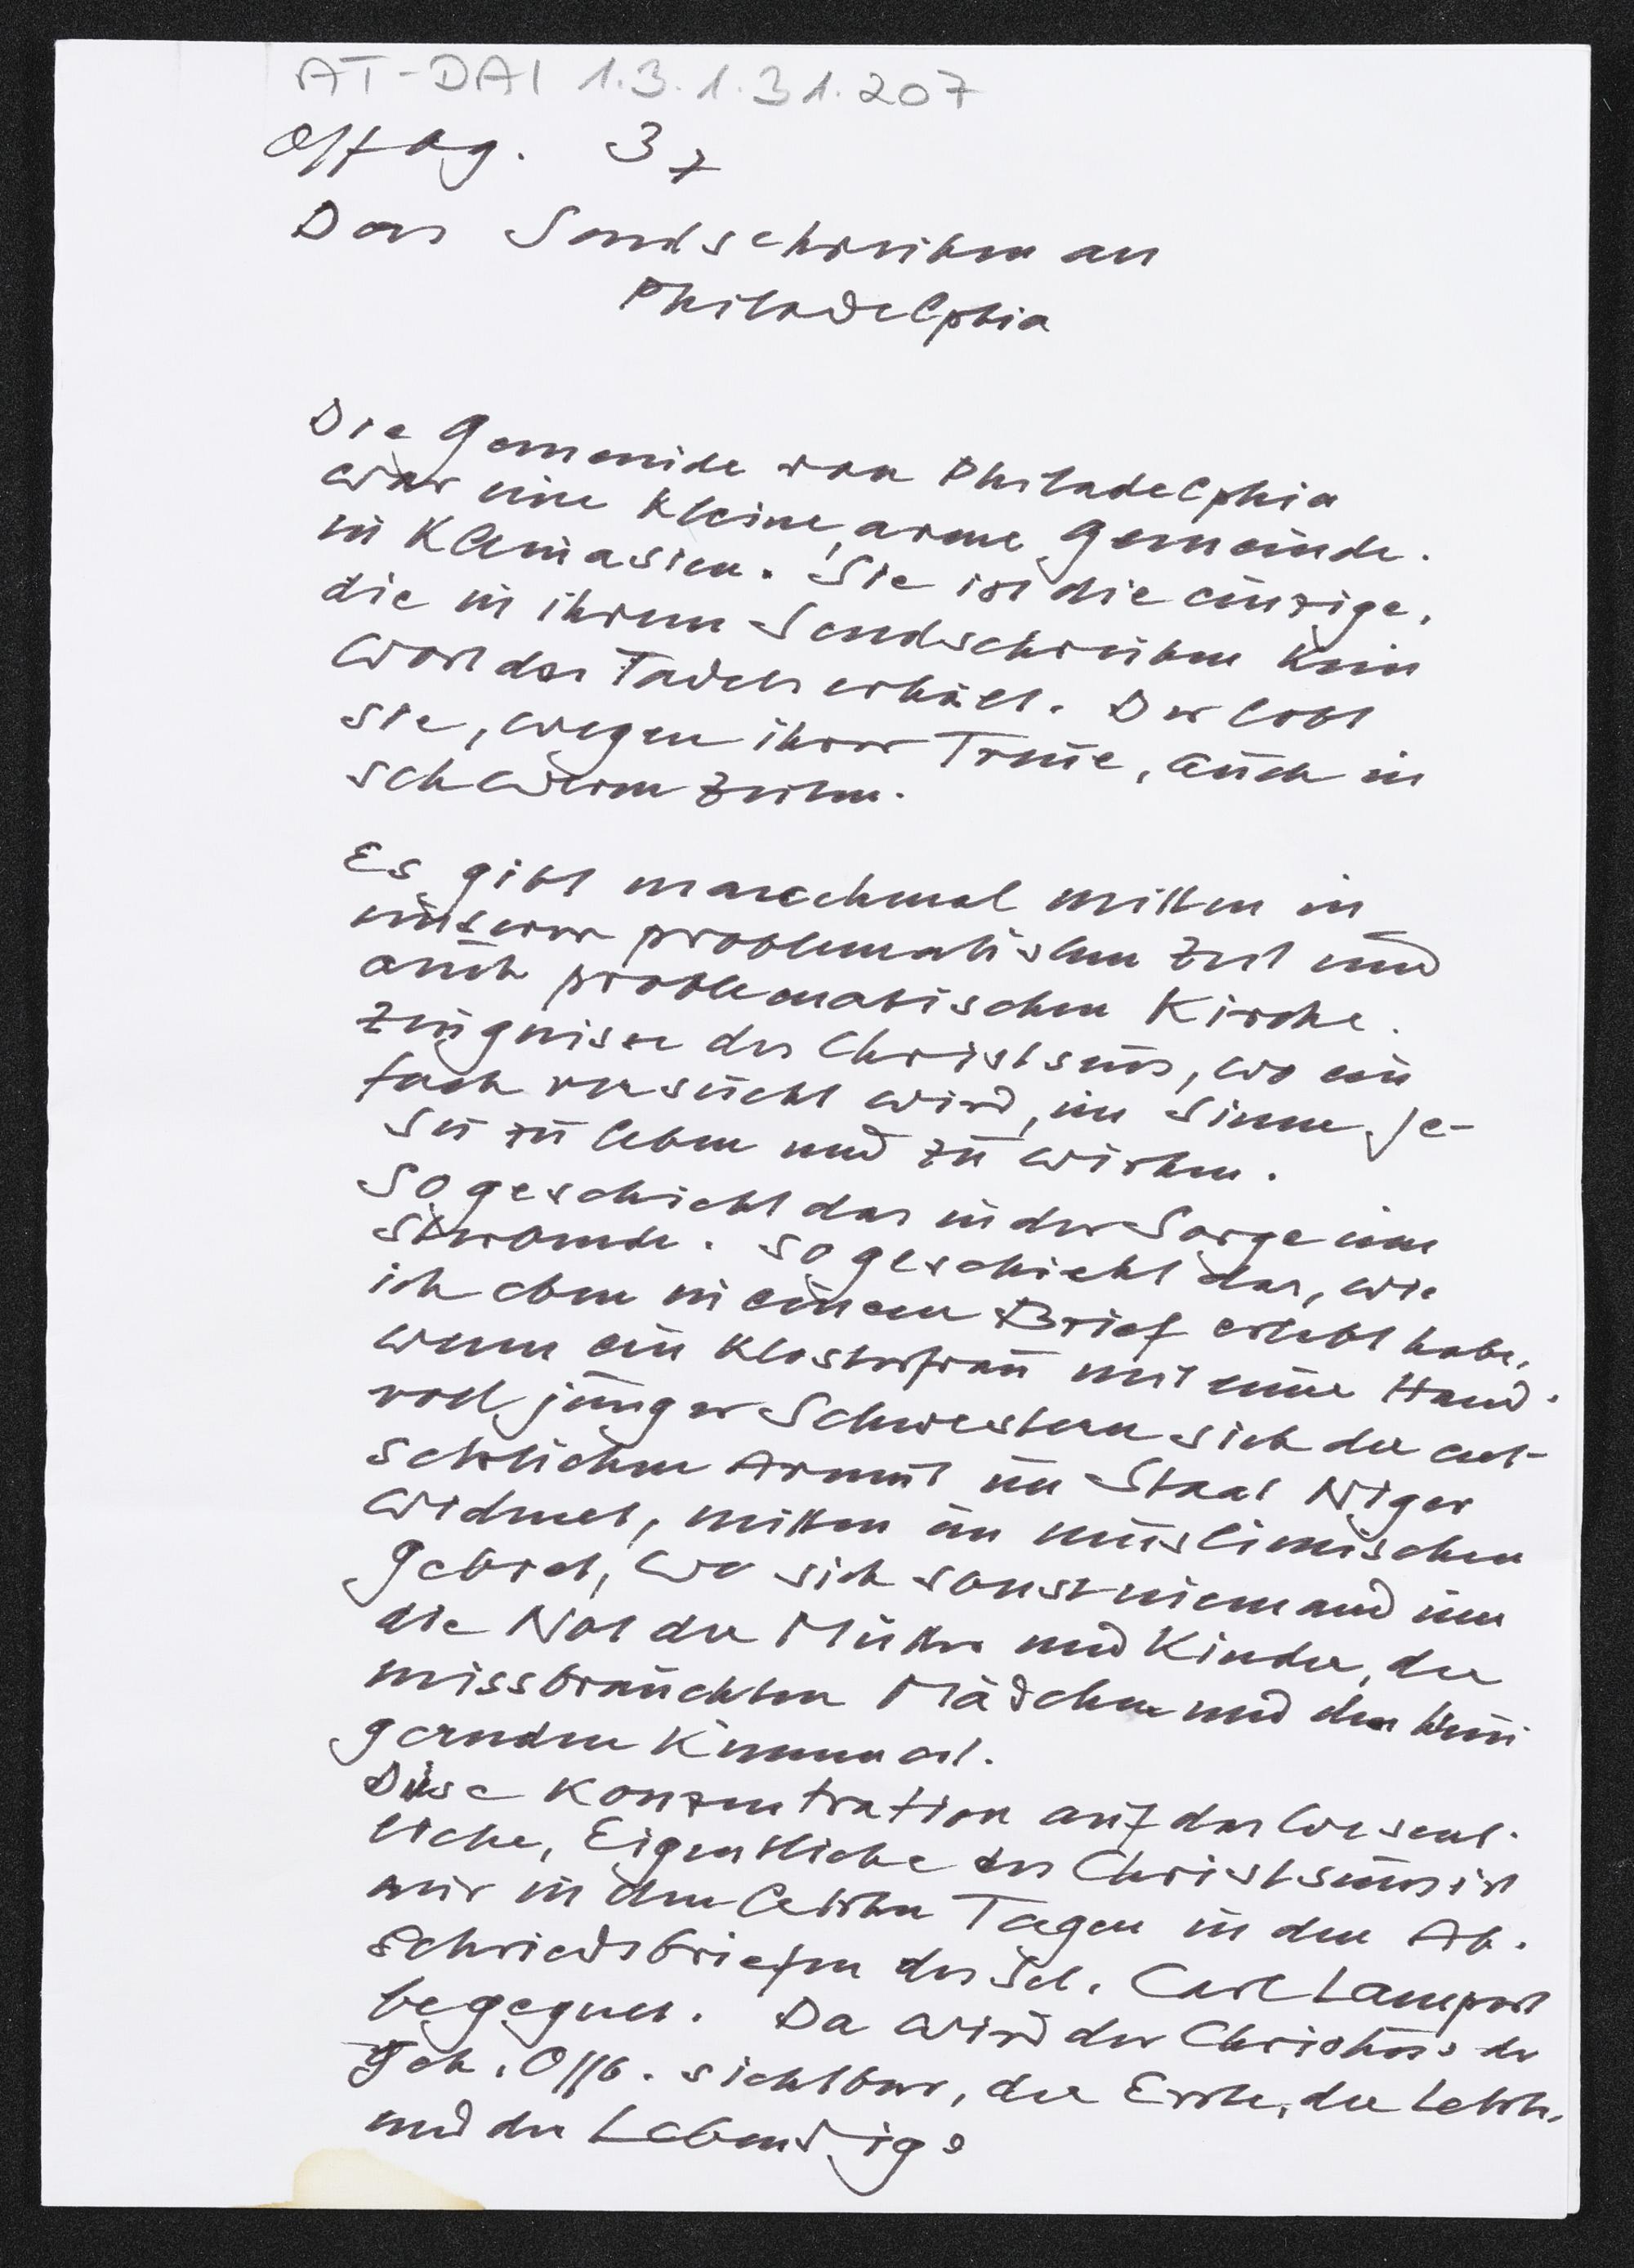 AT-DAI 1.3.1.31.207
Offbg. 3 7
Das Sendschreiben an
Philadelphia
Die Gemeinde von Philadelphia
war eine kleine, arme Gemeinde.
in Kleinasien. Sie ist die einzige,
die in ihrem Sendschreiben kein
Wort des Tadels erhält. Der lobt
sie, wegen ihrer Treue, auch in
schweren Zeiten.
Es gibt manchmal mitten in
unserer problematischen Zeit und
auch problematischen Kirche.
Zeugnisse des Christseins, wo ein
fach versucht wird, im Sinne Je-
su zu leben und zu wirken.
So geschieht das in der Sorge um
Sterbende. So geschieht das, wie
ich eben in einem Brief erlebt habe,
wenn ein Klosterfrau mit einer Hand
voll junger Schwestern sich der ent-
setzlichen Armut im Staat Niger
widmet, mitten im muslimischen
Gebiet, wo sich sonst niemand um
die Not der Mütter und Kinder, der
missbrauchten Mädchen und den hun
gernden kümmert.
Diese Konzentration auf das Wesent-
liche, Eigentliche des Christseins ist
mir in den letzten Tagen in den Ab-
schiedsbriefen des Sel. Carl Lampert
begegnet. Da wird der Christus der
Geh. Offb. sichtbar, der Erste, der Letzte,
und der Lebendige